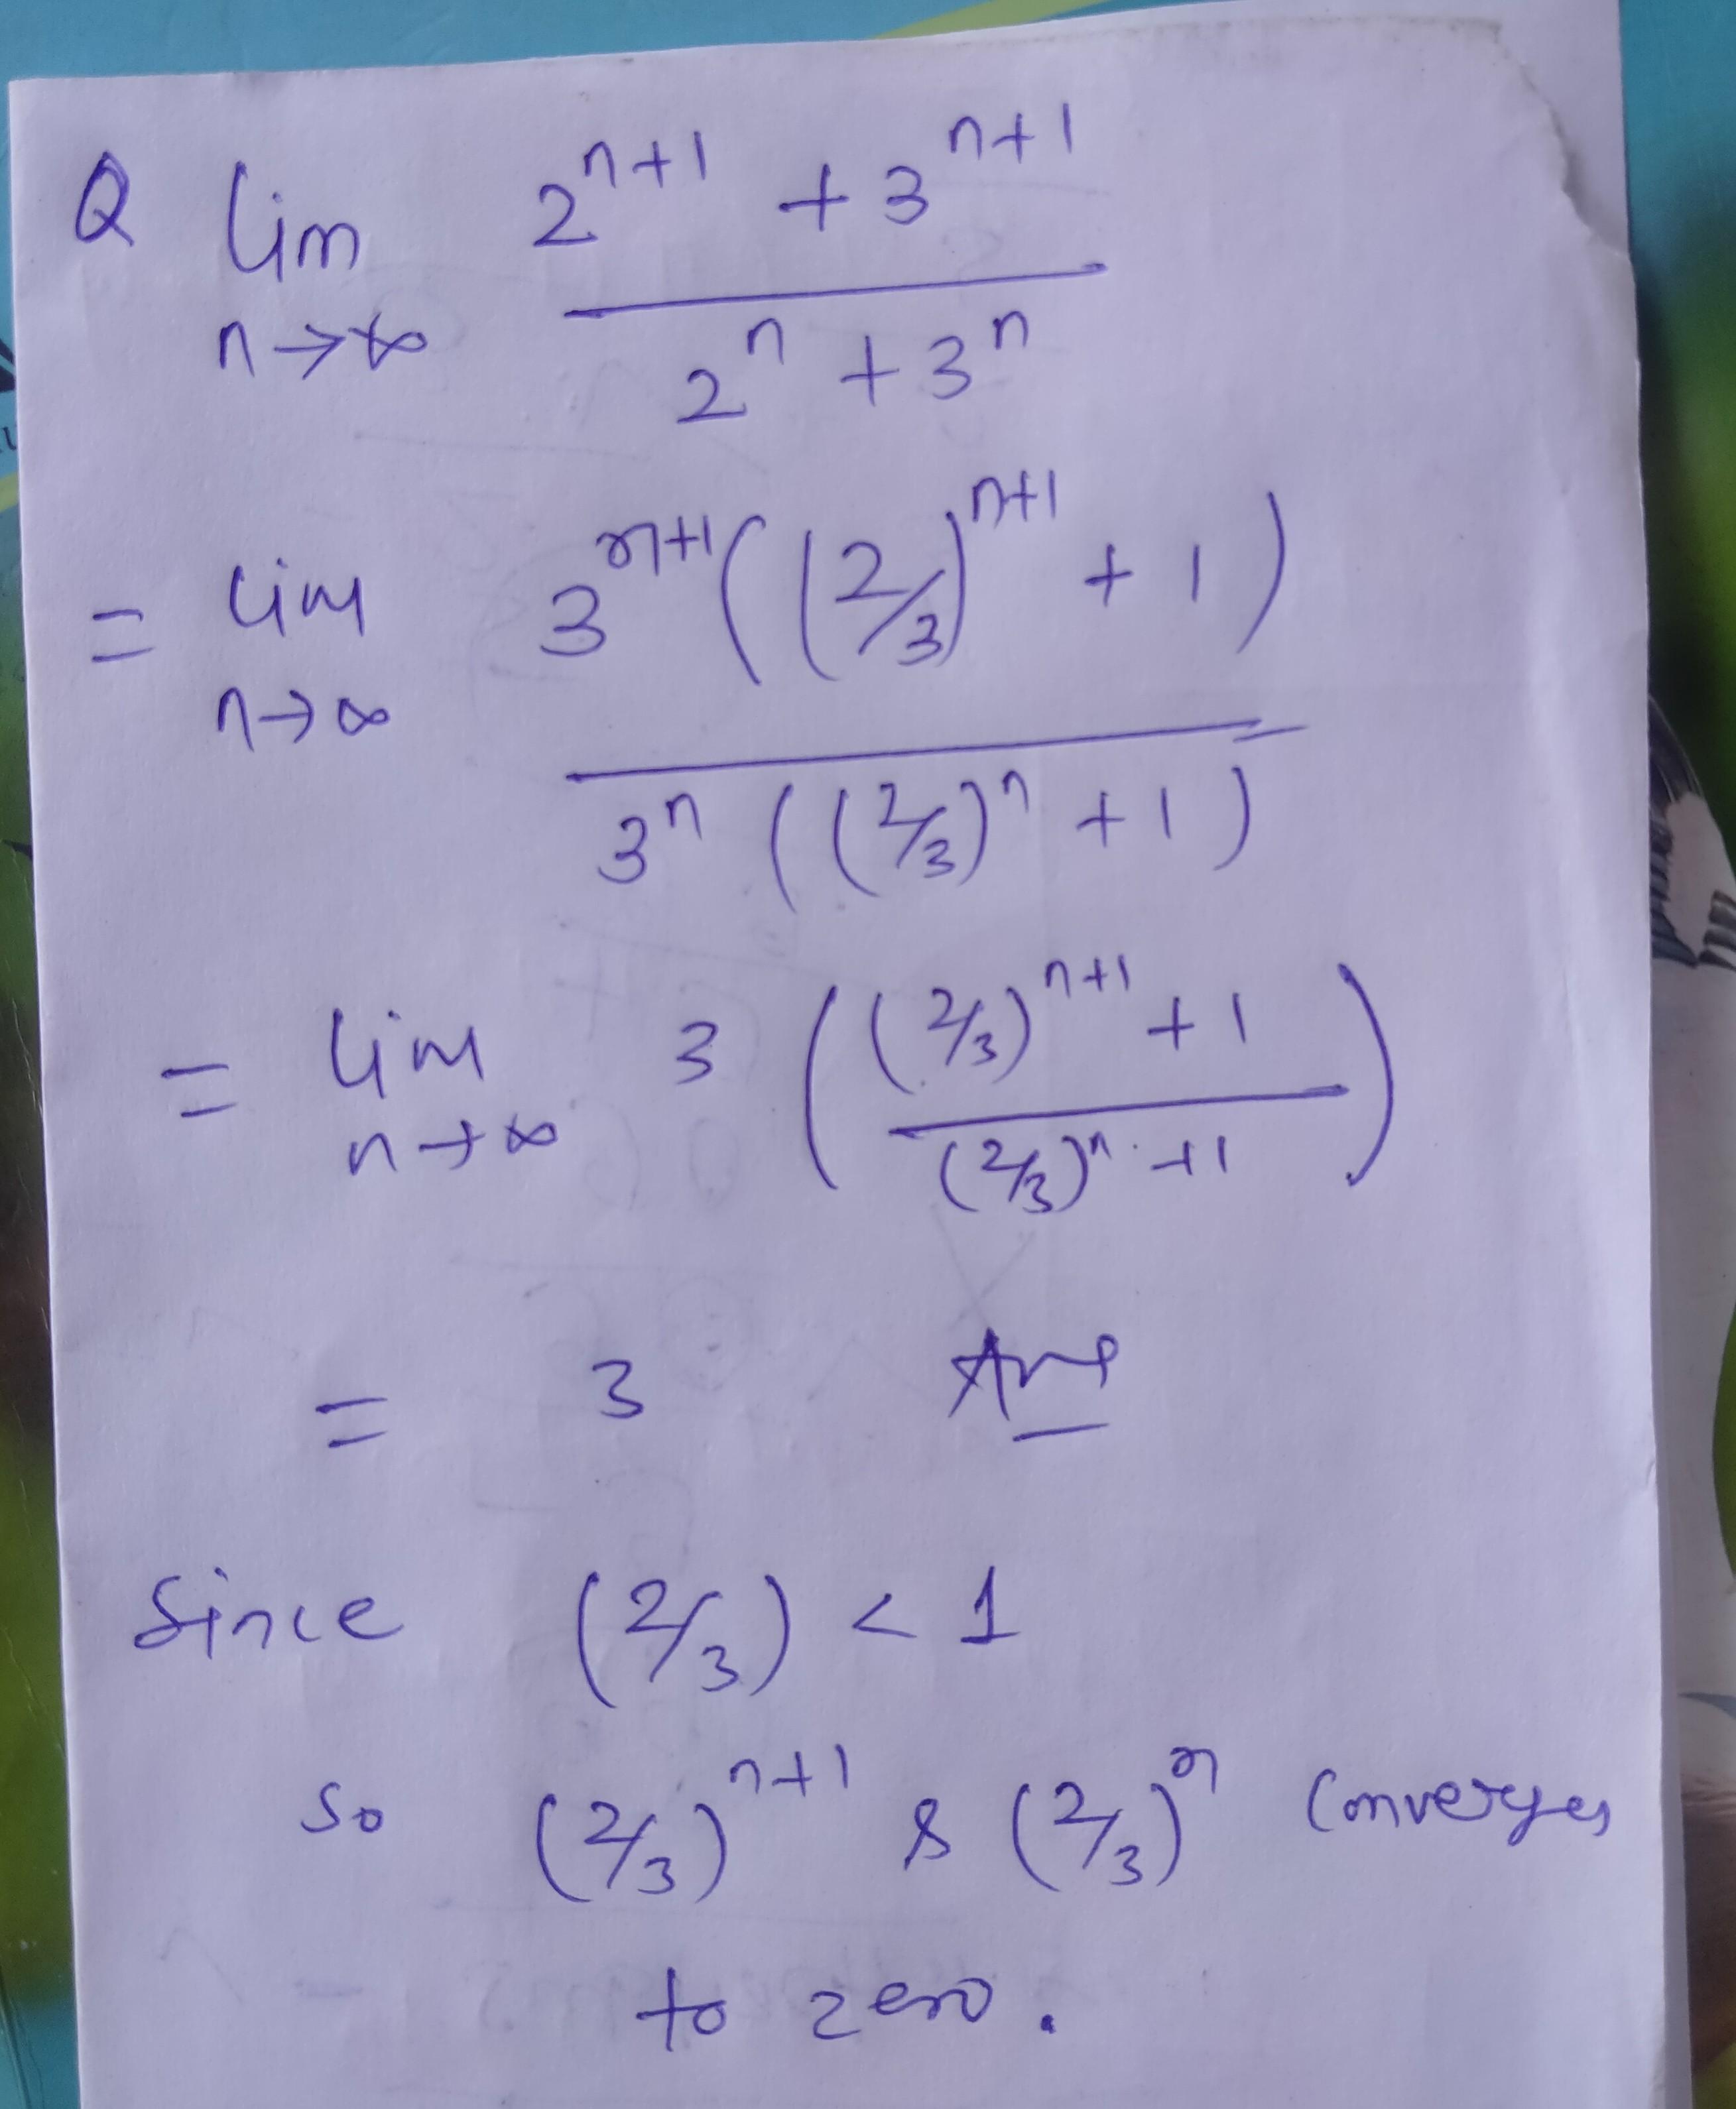 Q lim n→∞ (2^{n+1} + 3^{n+1}) / (2^n + 3^n)
= lim n→∞ 3^{n+1}((2/3)^{n+1} + 1) / 3^n((2/3)^n + 1)
= lim n→∞ 3(((2/3)^{n+1} + 1) / ((2/3)^n + 1))
= 3 Ans
Since (2/3) < 1
So (2/3)^{n+1} & (2/3)^n Converges
to zero.